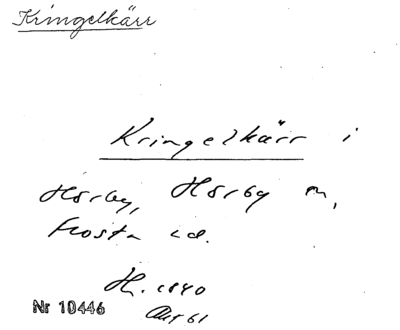 Kringelkärr
Kringelkärr i
Hörby, Hörby sn,
Frosta hd.
H. 1840
Nr 10446